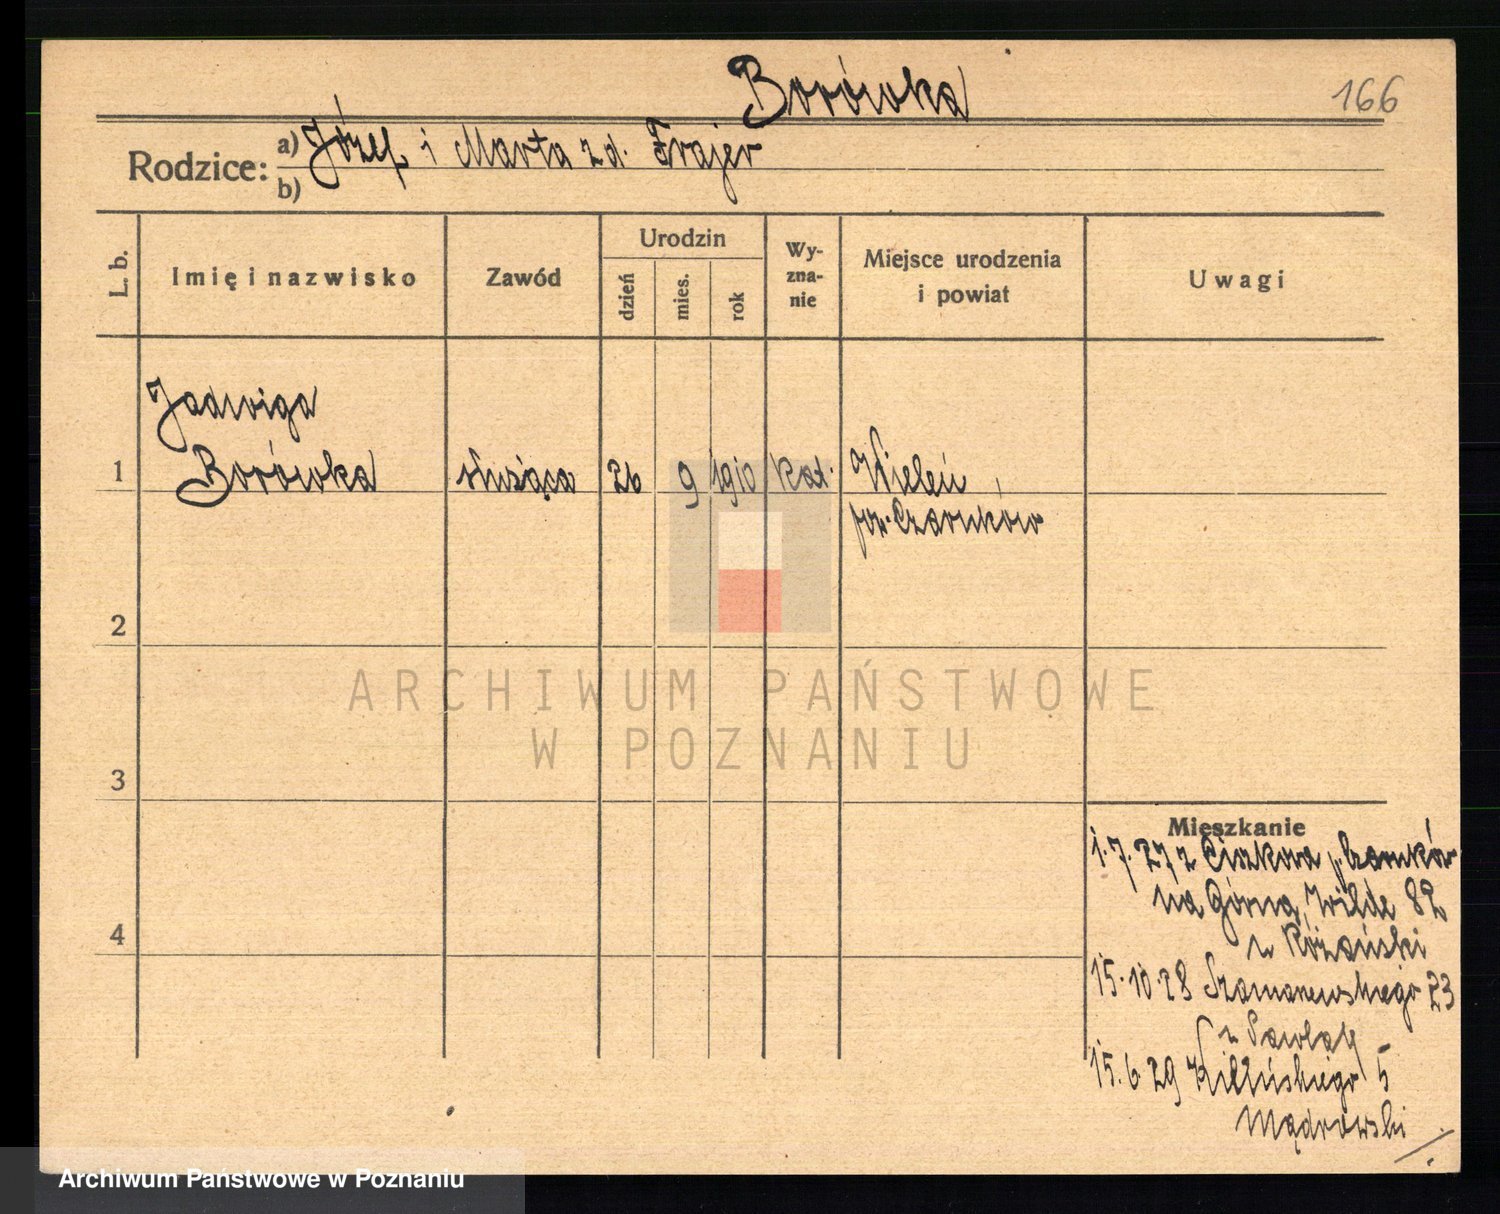 Borówka
166
Rodzice: a) Józef i Marta zd. Frajer
b)
L. b.
Imię i nazwisko
Zawód
Urodzin
dzień
mies.
rok
Wy-
zna-
nie
Miejsce urodzenia
i powiat
Uwagi
Jadwiga
1 Borówka służąca 26 9 1910 kat. Wieleń
pow. Czarnków
2
3
4
Mieszkanie
1.7.27 z Ciszkowa p. Czarnków
na Górna Wilda 82
u Różański
15.10.28 Szamarzewskiego 23
u
15.6.29 Kilińskiego 5
Mądrowski
ARCHIWUM PAŃSTWOWE
W POZNANIU
Archiwum Państwowe w Poznaniu